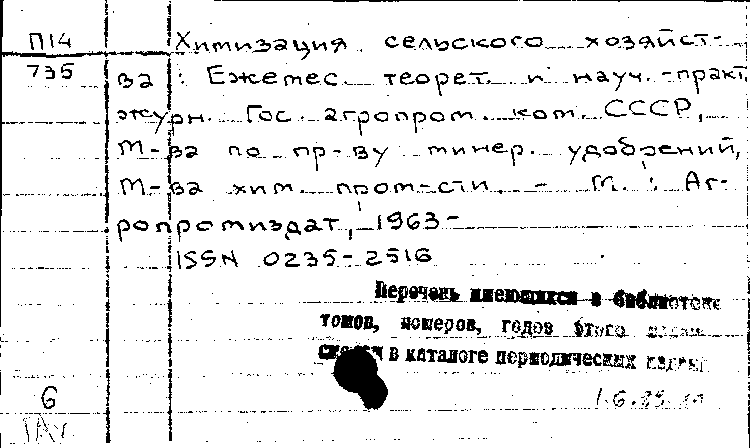 П14
735
Химизация сельского хозяйст-
ва : Ежемес. теорет. и науч.-практ.
журн. Гос. агропром. ком. СССР,
М-ва по пр-ву минер. удобрений,
М-ва хим. пром-сти. - М. : Аг-
ропромиздат, 1963-
ISSN 0235-2516
Перечень имеющихся в библиотеке
томов, номеров, годов этого
в каталоге периодических
6
1.6.89